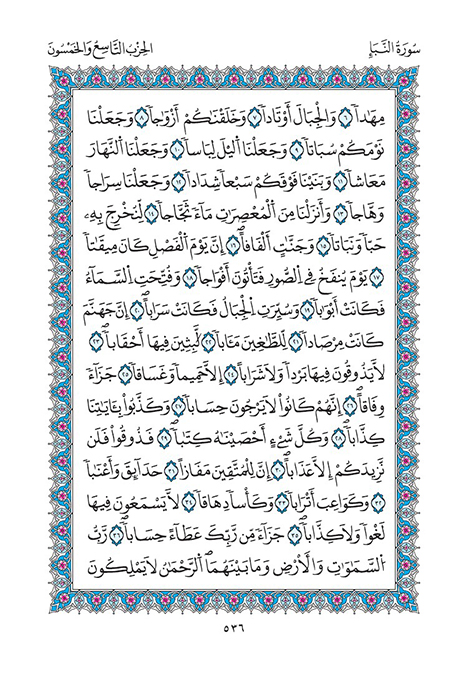 سُورَةُ النَّبَإِ الحِزْبُ التَّاسِعُ وَالخَمْسُونَ
مِهَٰداٗ ٦ وَالْجِبَالَ أَوْتَاداٗ ٧ وَخَلَقْنَٰكُمْ أَزْوَٰجاٗ ٨ وَجَعَلْنَا
نَوْمَكُمْ سُبَاتاٗ ٩ وَجَعَلْنَا اَليْلَ لِبَاساٗ ١٠ وَجَعَلْنَا اَلنَّهَارَ
مَعَاشاٗ ١١ وَبَنَيْنَا فَوْقَكُمْ سَبْعاٗ شِدَاداٗ ١٢ وَجَعَلْنَا سِرَاجاٗ
وَهَّاجاٗ ١٣ وَأَنزَلْنَا مِنَ اَلْمُعْصِرَٰتِ مَآءٗ ثَجَّاجاٗ ١٤ لِّنُخْرِجَ بِهِۦ
حَبّاٗ وَنَبَاتاٗ ١٥ وَجَنَّٰتٍ أَلْفَافاٗ ١٦ إِنَّ يَوْمَ اَلْفَصْلِ كَانَ مِيقَٰتاٗ
١٧ يَوْمَ يُنفَخُ فِي اِلصُّورِ فَتَأْتُونَ أَفْوَاجاٗ ١٨ وَفُتِّحَتِ اِلسَّمَآءُ
فَكَانَتْ أَبْوَٰباٗ ١٩ وَسُيِّرَتِ اِلْجِبَالُ فَكَانَتْ سَرَاباً ٢٠ إِنَّ جَهَنَّمَ
كَانَتْ مِرْصَاداٗ ٢١ لِّلطَّٰغِينَ مَـَٔاباٗ ٢٢ لَّٰبِثِينَ فِيهَا أَحْقَاباٗ ٢٣
لَّا يَذُوقُونَ فِيهَا بَرْداٗ وَلَا شَرَاباً ٢٤ اِلَّا حَمِيماٗ وَغَسَاقاٗ ٢٥ جَزَآءٗ
وِفَاقاً ٢٦ إِنَّهُمْ كَانُوا لَا يَرْجُونَ حِسَاباٗ ٢٧ وَكَذَّبُوا بِـَٔايَٰتِنَا
كِذَّاباٗ ٢٨ وَكُلَّ شَيْءٍ أَحْصَيْنَٰهُ كِتَٰباٗ ٢٩ فَذُوقُوا فَلَن
نَّزِيدَكُمْ إِلَّا عَذَاباً ٣٠ إِنَّ لِلْمُتَّقِينَ مَفَازاً ٣١ حَدَآئِقَ وَأَعْنَٰباٗ
٣٢ وَكَوَاعِبَ أَتْرَاباٗ ٣٣ وَكَأْساٗ دِهَاقاٗ ٣٤ لَّا يَسْمَعُونَ فِيهَا
لَغْواٗ وَلَا كِذَّاباٗ ٣٥ جَزَآءٗ مِّن رَّبِّكَ عَطَآءً حِسَاباٗ ٣٦ رَّبُّ
اُلسَّمَٰوَٰتِ وَالْأَرْضِ وَمَا بَيْنَهُمَا اَلرَّحْمَٰنُ لَا يَمْلِكُونَ
٥٣٦